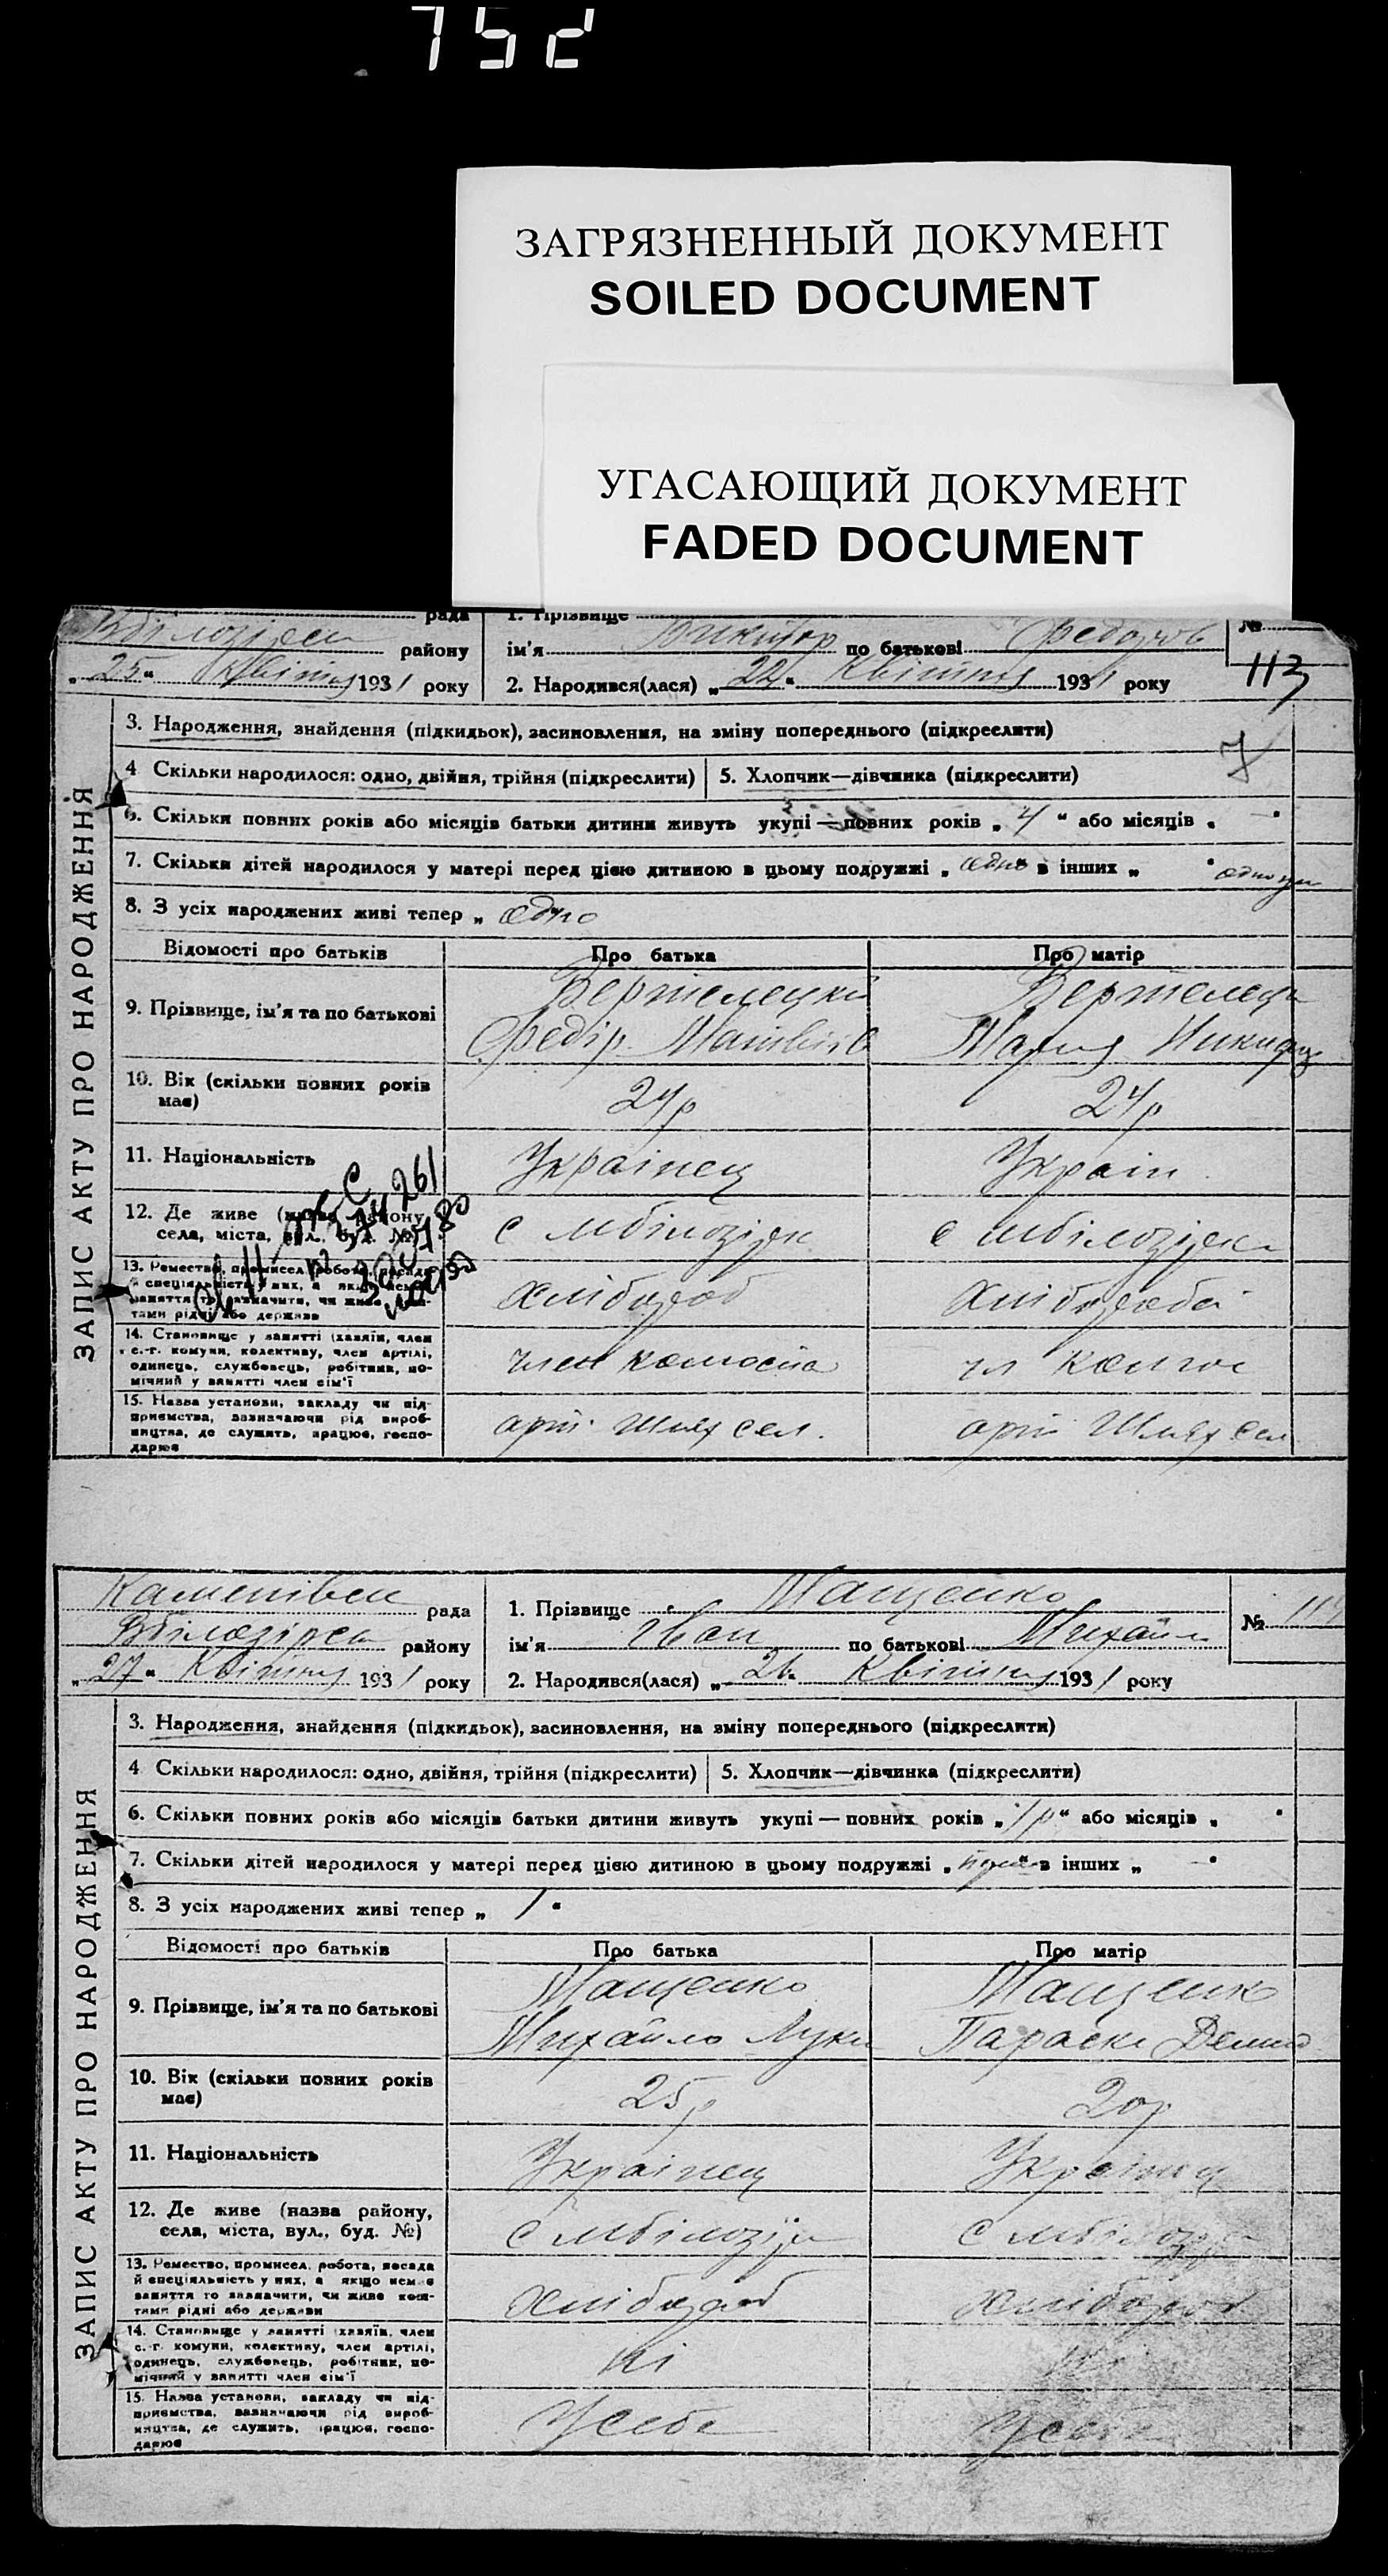 752
ЗАГРЯЗНЕННЫЙ ДОКУМЕНТ
SOILED DOCUMENT
УГАСАЮЩИЙ ДОКУМЕНТ
FADED DOCUMENT
рада
1. Прізвище
№
району
ім'я Виктор по батькові Федоров
113
„25“ Квітня 1931 року
2. Народився(лася) „22“ Квітня 1931 року
ЗАПИС АКТУ ПРО НАРОДЖЕННЯ
3. Народження, знайдення (підкидьок), засиновлення, на зміну попереднього (підкреслити)
7
4 Скільки народилося: одно, двійня, трійня (підкреслити)
5. Хлопчик—дівчинка (підкреслити)
6. Скільки повних років або місяців батьки дитини живуть укупі — повних років „4“ або місяців „ — “
7. Скільки дітей народилося у матері перед цією дитиною в цьому подружжі „одно“ в інших „ “
8. З усіх народжених живі тепер „ одно
Відомості про батьків
Про батька
Про матір
9. Прізвище, ім'я та по батькові
Вертелецкий
Федір Матвіїв
Вертелецк
Мария
10. Вік (скільки повних років має)
24р
24р
11. Національність
Українец
Україн
12. Де живе (назва району,
села, міста, вул., буд. №)
с мбілозірк
с мбілозірка
13. Ремество, промисел, робота, посада
й спеціяльність у них, а якщо немає
заняття то зазначити, чи живе кош-
тами рідні або держави
Хлібороб
Хлібороб
14. Становище у занятті (хазяїн, член
с.-г. комуни, колективу, член артілі,
одинець, службовець, робітник, по-
мічний у занятті член сім'ї
член колгоспа
чл колгос
15. Назва установи, закладу чи під-
приємства, зазначаючи рід вироб-
ництва, де служить, працює, госпо-
дарює
арт. Шлях сел.
арт Шлях сел
рада
1. Прізвище Мащенко
№ 114
району
ім'я Іван по батькові Михайл
„27“ Квітня 1931 року
2. Народився(лася) „26“ Квітня 1931 року
ЗАПИС АКТУ ПРО НАРОДЖЕННЯ
3. Народження, знайдення (підкидьок), засиновлення, на зміну попереднього (підкреслити)
4 Скільки народилося: одно, двійня, трійня (підкреслити)
5. Хлопчик—дівчинка (підкреслити)
6. Скільки повних років або місяців батьки дитини живуть укупі — повних років „1р“ або місяців „ “
7. Скільки дітей народилося у матері перед цією дитиною в цьому подружжі „ “ в інших „ — “
8. З усіх народжених живі тепер „ 1 “
Відомості про батьків
Про батька
Про матір
9. Прізвище, ім'я та по батькові
Мащенко
Михайло Луки
Мащенко
Параска Демид
10. Вік (скільки повних років має)
25р
20р
11. Національність
Українец
Українц
12. Де живе (назва району,
села, міста, вул., буд. №)
с мбілозір
с мбілозір
13. Ремество, промисел, робота, посада
й спеціяльність у них, а якщо немає
заняття то зазначити, чи живе кош-
тами рідні або держави
Хлібороб
хлібороб
14. Становище у занятті (хазяїн, член
с.-г. комуни, колективу, член артілі,
одинець, службовець, робітник, по-
мічний у занятті член сім'ї
ні
ні
15. Назва установи, закладу чи під-
приємства, зазначаючи рід вироб-
ництва, де служить, працює, госпо-
дарює
У себе
У себе